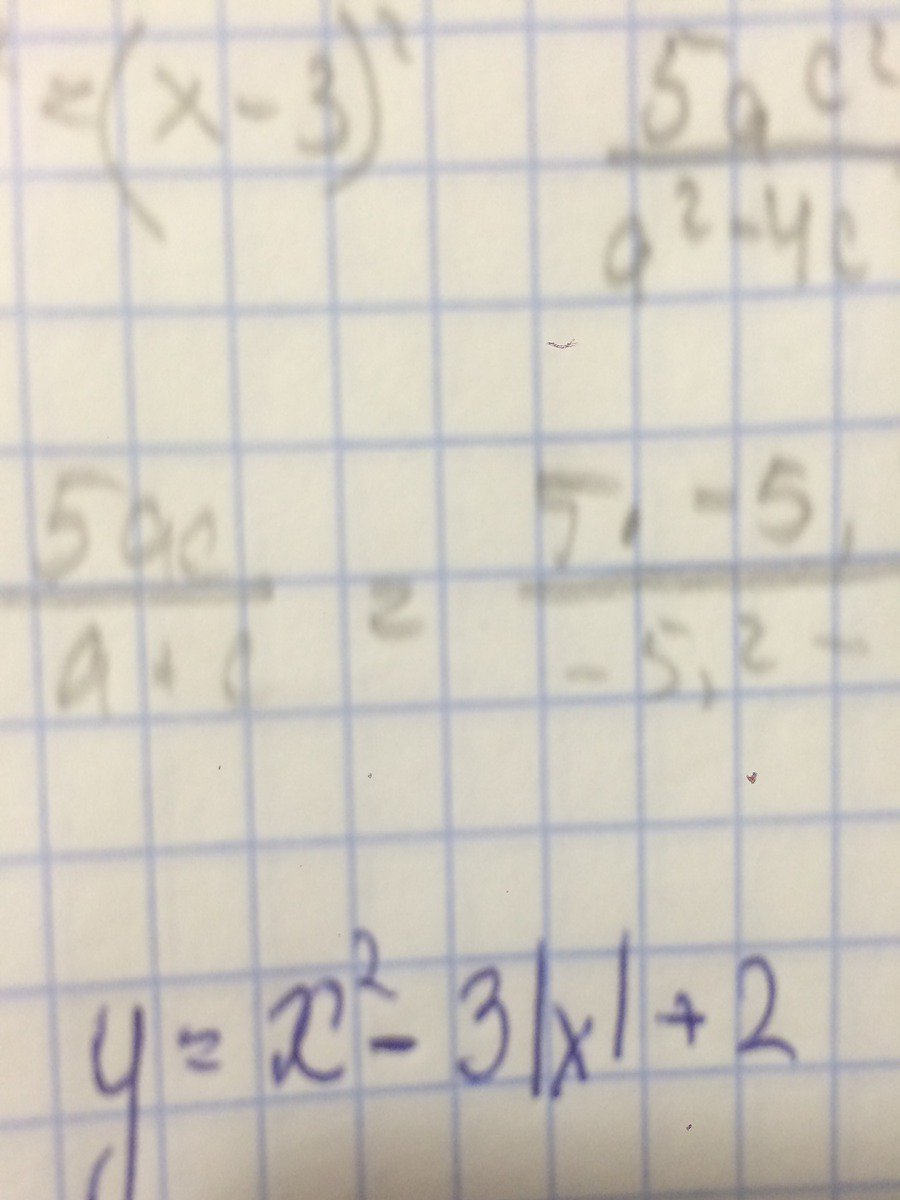 =(x-3)² 5ac²
a²-4c
5ac = -5,
a+c -5,2 -
y = x² - 3|x| + 2